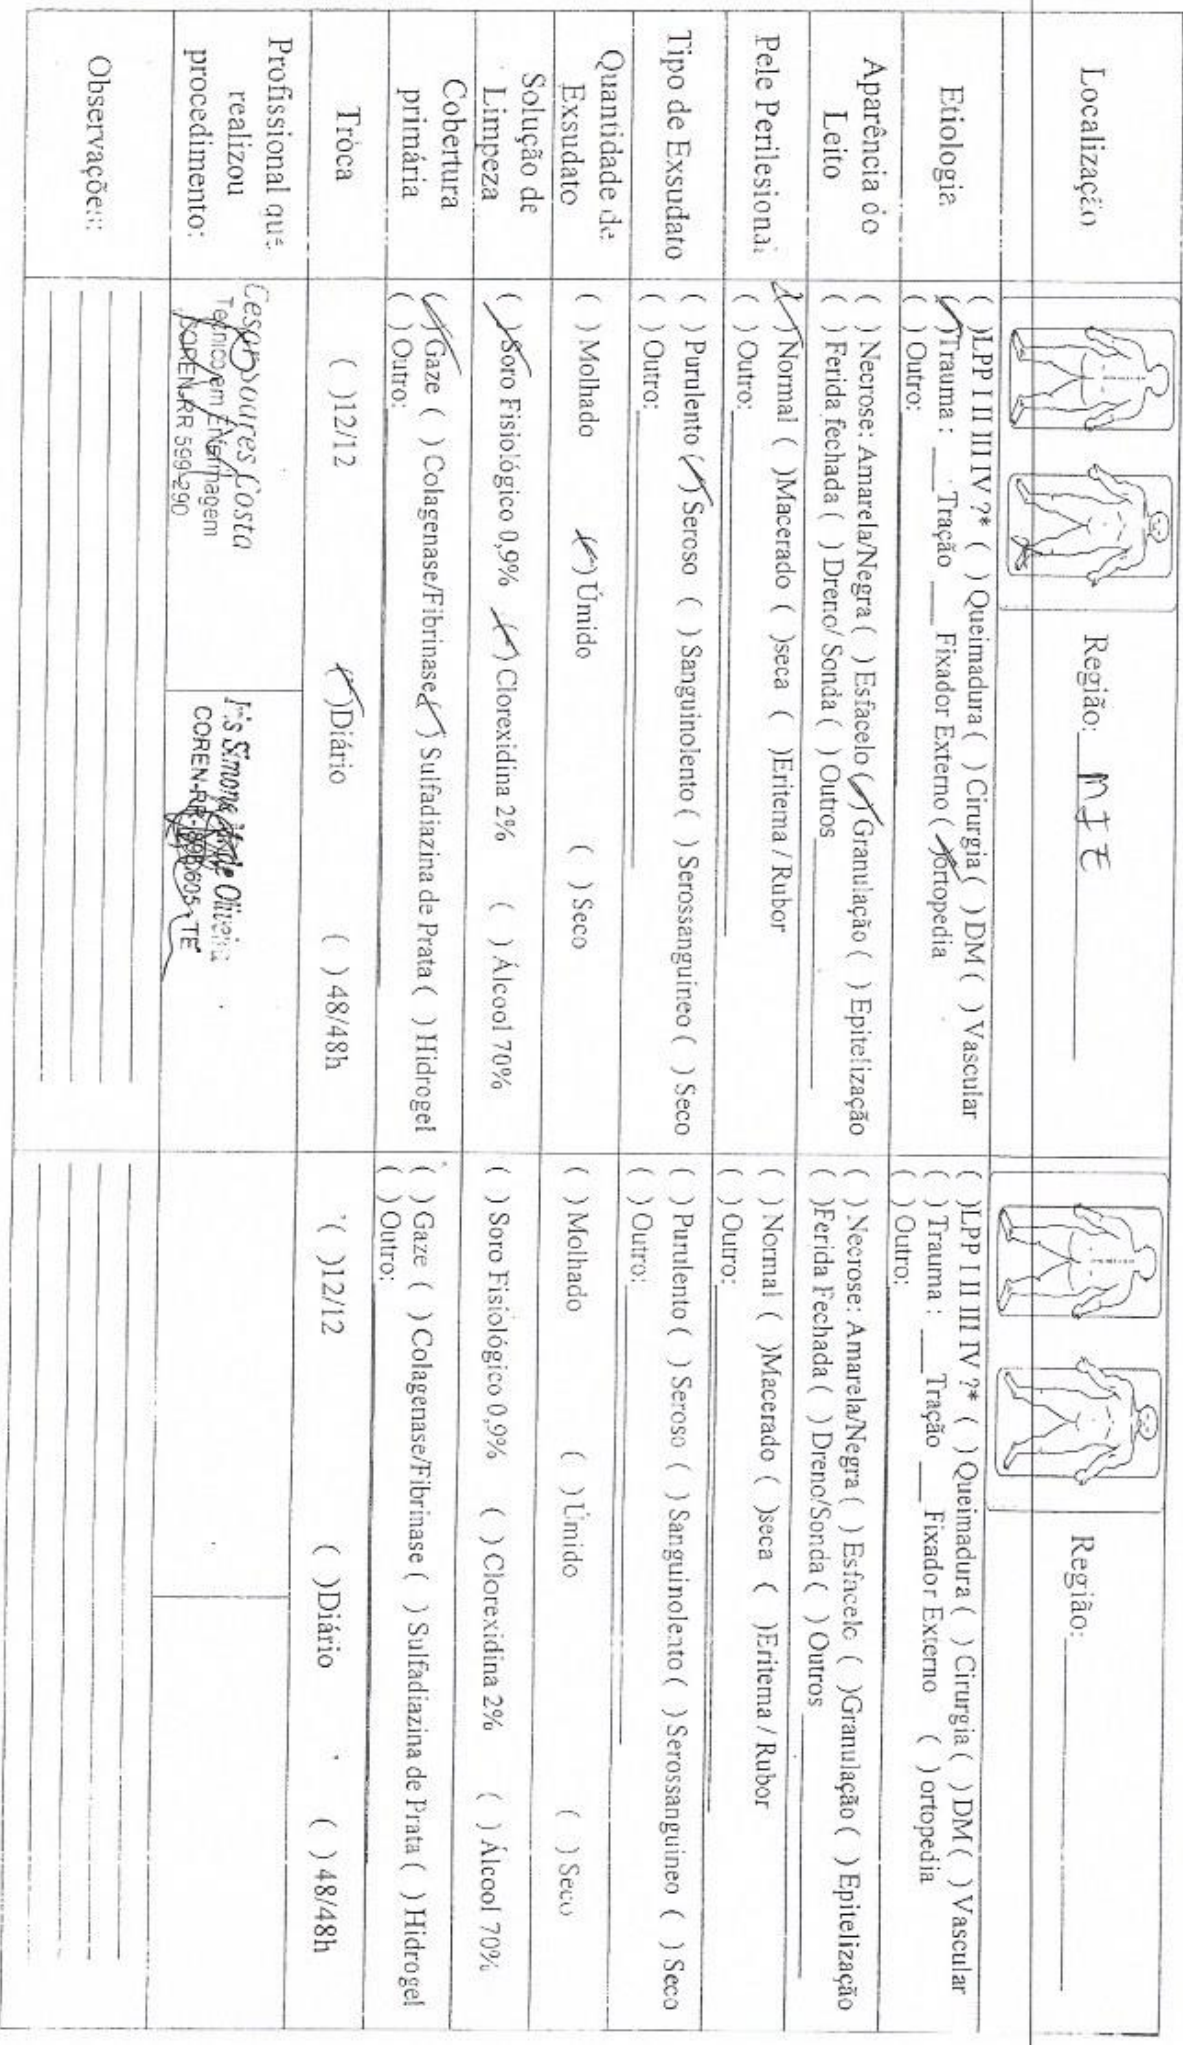 Localização
Região: MIE
Região:
Etiologia
( )LPP I II III IV ?* ( ) Queimadura ( ) Cirurgia ( ) DM ( ) Vascular
(✓)Trauma : ___ Tração ___ Fixador Externo (✓)ortopedia
( ) Outro:
( )LPP I II III IV ?* ( ) Queimadura ( ) Cirurgia ( ) DM ( ) Vascular
( ) Trauma : ___ Tração ___ Fixador Externo ( ) ortopedia
( ) Outro:
Aparência do
Leito
( ) Necrose: Amarela/Negra ( ) Esfacelo (✓)Granulação ( ) Epitelização
( ) Ferida fechada ( ) Dreno/ Sonda ( ) Outros
( ) Necrose: Amarela/Negra ( ) Esfacelo ( )Granulação ( ) Epitelização
( )Ferida Fechada ( ) Dreno/Sonda ( ) Outros
Pele Perilesional
(✓) Normal ( )Macerado ( )seca ( )Eritema / Rubor
( ) Outro:
( ) Normal ( )Macerado ( )seca ( )Eritema / Rubor
( ) Outro:
Tipo de Exsudato
( ) Purulento (✓) Seroso ( ) Sanguinolento ( ) Serossanguineo ( ) Seco
( ) Outro:
( ) Purulento ( ) Seroso ( ) Sanguinolento ( ) Serossanguineo ( ) Seco
( ) Outro:
Quantidade de
Exsudato
( ) Molhado (✓) Úmido ( ) Seco
( ) Molhado ( ) Úmido ( ) Seco
Solução de
Limpeza
(✓)Soro Fisiológico 0,9% (✓) Clorexidina 2% ( ) Álcool 70%
( ) Soro Fisiológico 0,9% ( ) Clorexidina 2% ( ) Álcool 70%
Cobertura
primária
(✓)Gaze ( ) Colagenase/Fibrinase (✓) Sulfadiazina de Prata ( ) Hidrogel
( ) Outro:
( ) Gaze ( ) Colagenase/Fibrinase ( ) Sulfadiazina de Prata ( ) Hidrogel
( ) Outro:
Troca
( )12/12 (✓)Diário ( ) 48/48h
( )12/12 ( )Diário ( ) 48/48h
Profissional que
realizou
procedimento:
Costa
Técnico em Enfermagem
COREN-RR 599-290
Simone de Oliveira
COREN-RR TE
Observações: